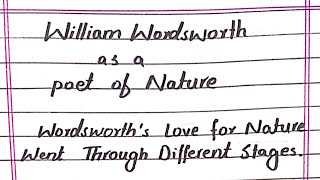 William Wordsworth
as a
poet of Nature
Wordsworth's Love for Nature
Went Through Different Stages.